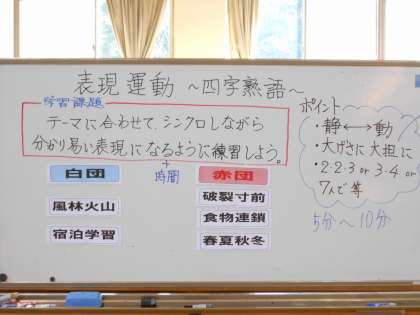 表現運動 ～四字熟語～
学習課題
テーマに合わせて、シンクロしながら
分かり易い表現になるように練習しよう。
+
時間
白団
風林火山
宿泊学習
赤団
破裂寸前
食物連鎖
春夏秋冬
ポイント
・静⟷動
・大げさに大胆に
・2・2・3 or 3・4 or
7人で等
5分～10分